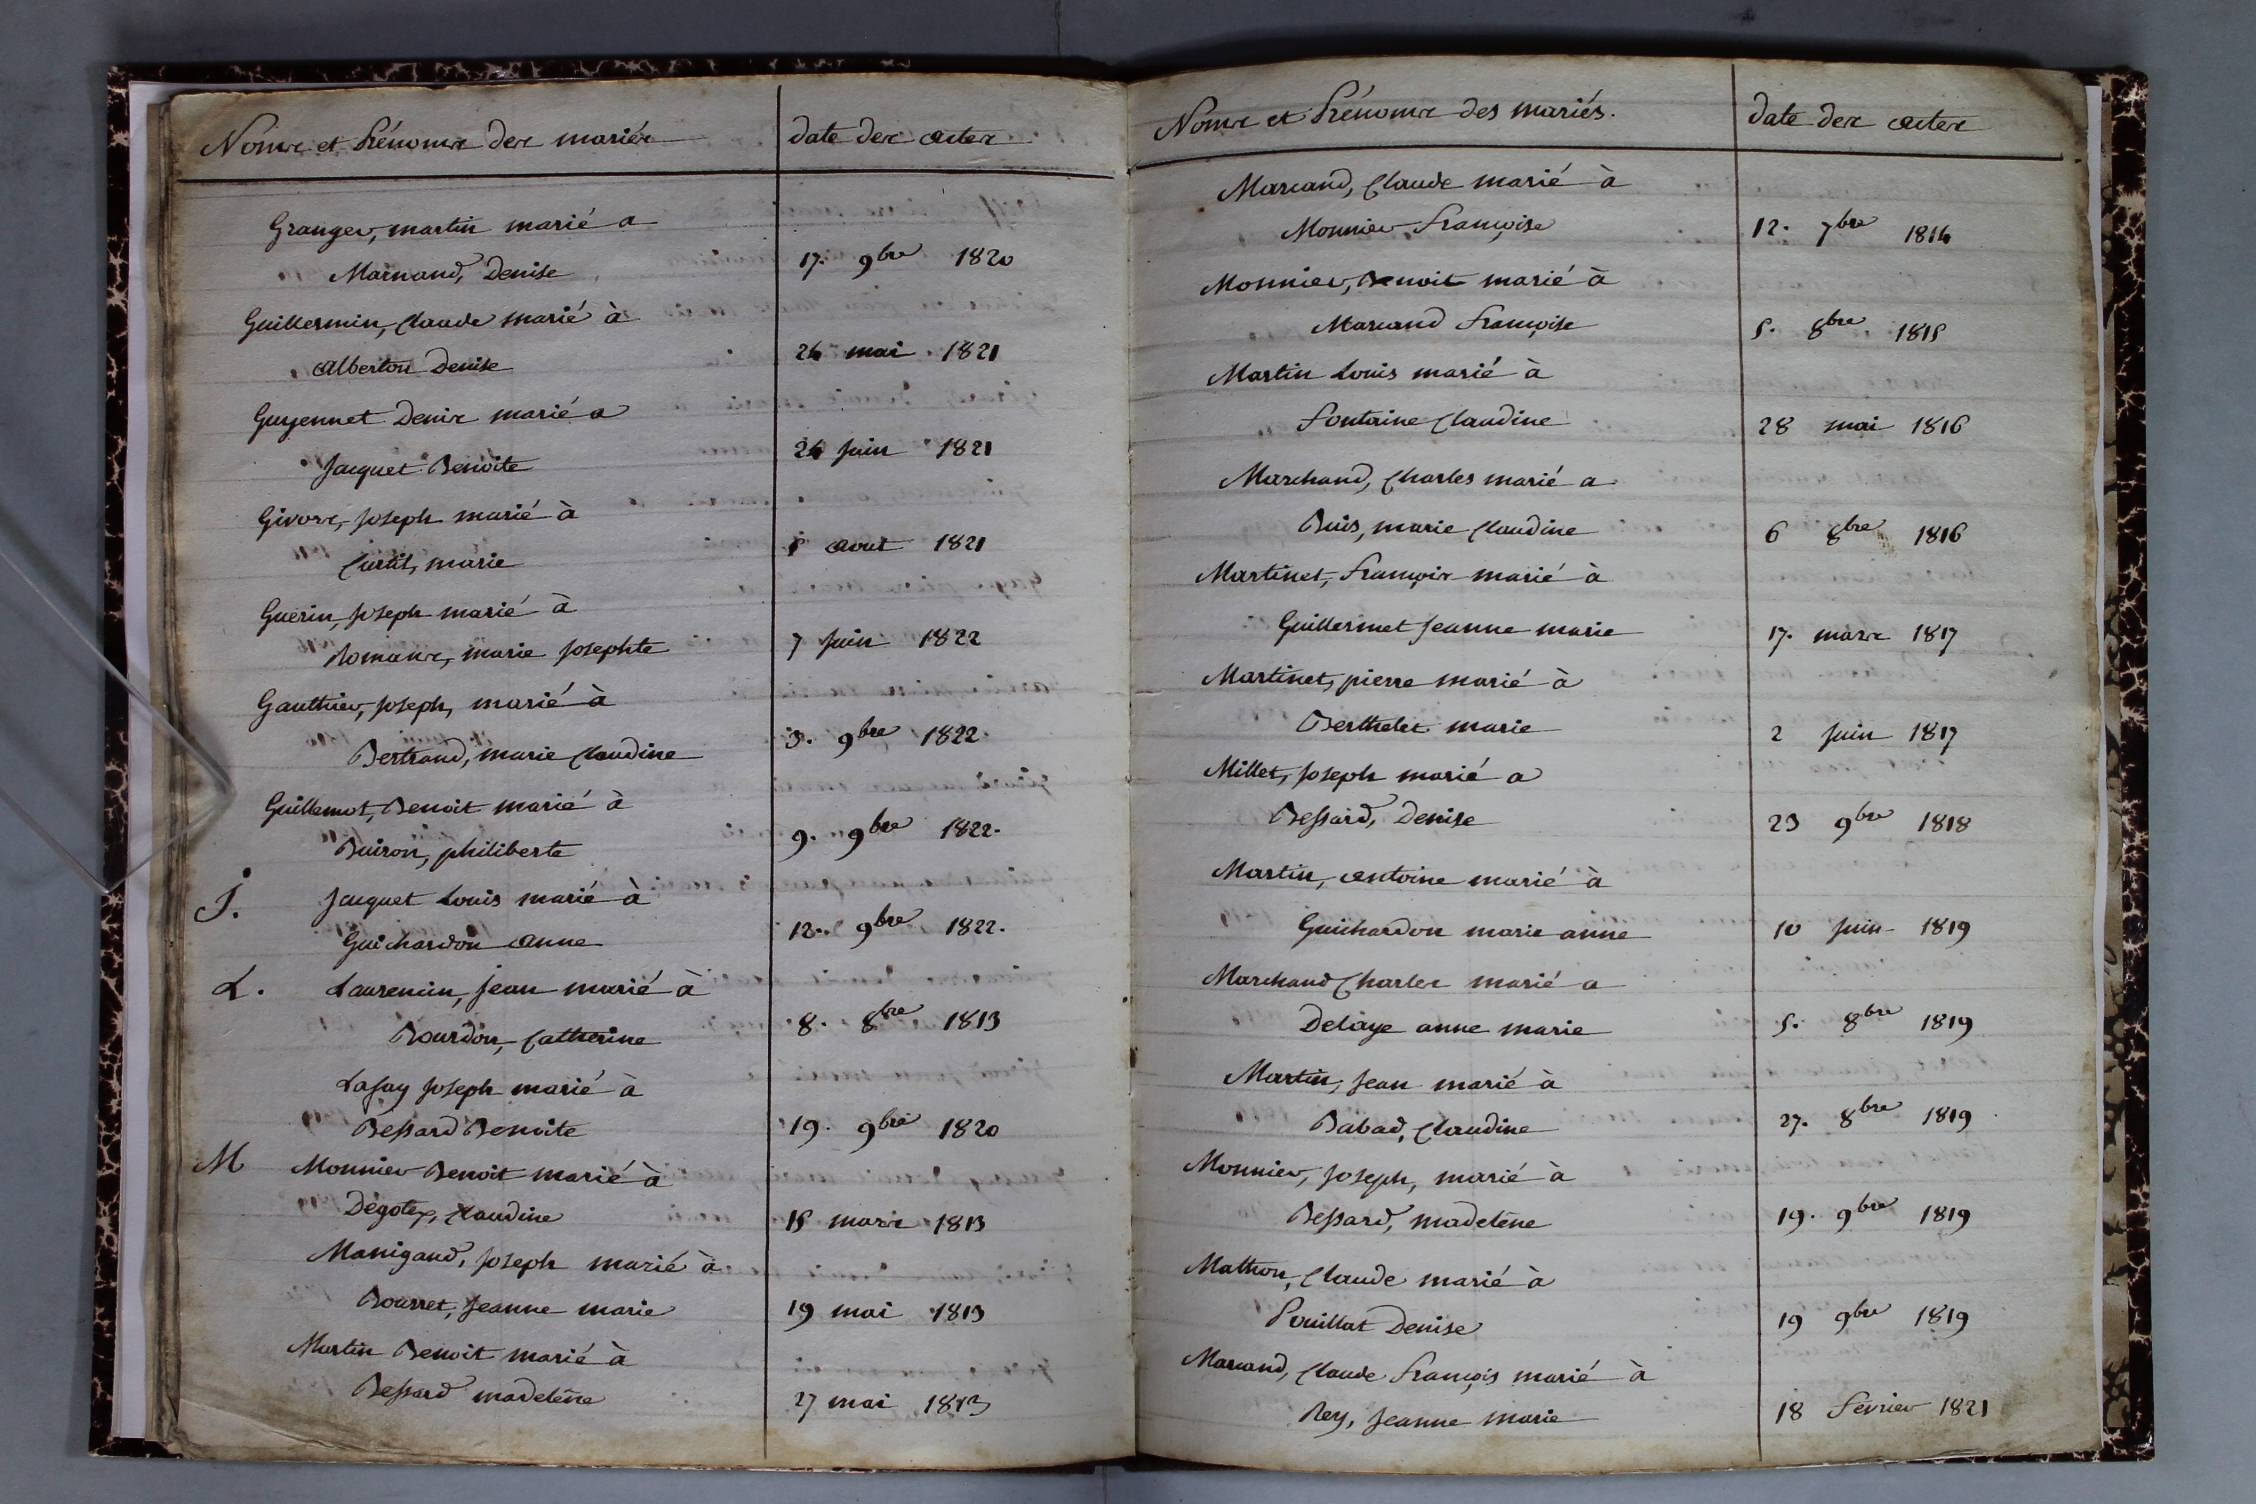 Noms et Prénoms des mariés
date des actes
Granger, martin marié a
Marmand, Denise
17. 9bre 1820
Guillermin, Claude marié à
Alberton Denise
24 mai 1821
Guyennet Denis marié a
Jacquet Benoite
24 juin 1821
Givors, joseph marié à
Curtil, marie
août 1821
Guerin, joseph marié à
Romans, marie josephte
7 juin 1822
Gauthier, joseph, marié à
Bertrand, marie Claudine
3. 9bre 1822
Guillemot, Benoit marié à
Buiron, philiberte
9. 9bre 1822.
J. Jacquet Louis marié à
Guichardon anne
12. 9bre 1822.
L. Laurencin, jean marié à
Bourdon, Catherine
8. 8bre 1813
Lafay joseph marié à
Bessard Benoite
19. 9bre 1820
M Monnier Benoit marié à
Degotex, Claudine
15 mars 1813
Manigand, joseph marié à
Bourret, jeanne marie
19 mai 1813
Martin Benoit marié à
Bessard madelène
27 mai 1813
Noms et Prénoms des mariés.
date des actes
Marcand, Claude marié à
Monnier Françoise
12. 7bre 1814
Monnier, Benoit marié à
Marcand Françoise
5. 8bre 1815
Martin Louis marié à
Fontaine Claudine
28 mai 1816
Marchand, Charles marié a
Buis, marie Claudine
6 8bre 1816
Martinet, François marié à
Guillermet jeanne marie
17. mars 1817
Martinet, pierre marié à
Berthelet marie
2 juin 1817
Millet, joseph marié a
Bessard, Denise
23 9bre 1818
Martin, antoine marié à
Guichardon marie anne
10 juin 1819
Marchand Charles marié a
Delaye anne marie
5. 8bre 1819
Martin, jean marié à
Babad, Claudine
27. 8bre 1819
Monnier, joseph, marié à
Bessard, madelène
19. 9bre 1819
Mathon, Claude marié à
Pouillat Denise
19 9bre 1819
Marcand, Claude François marié à
Rey, jeanne marie
18 Février 1821